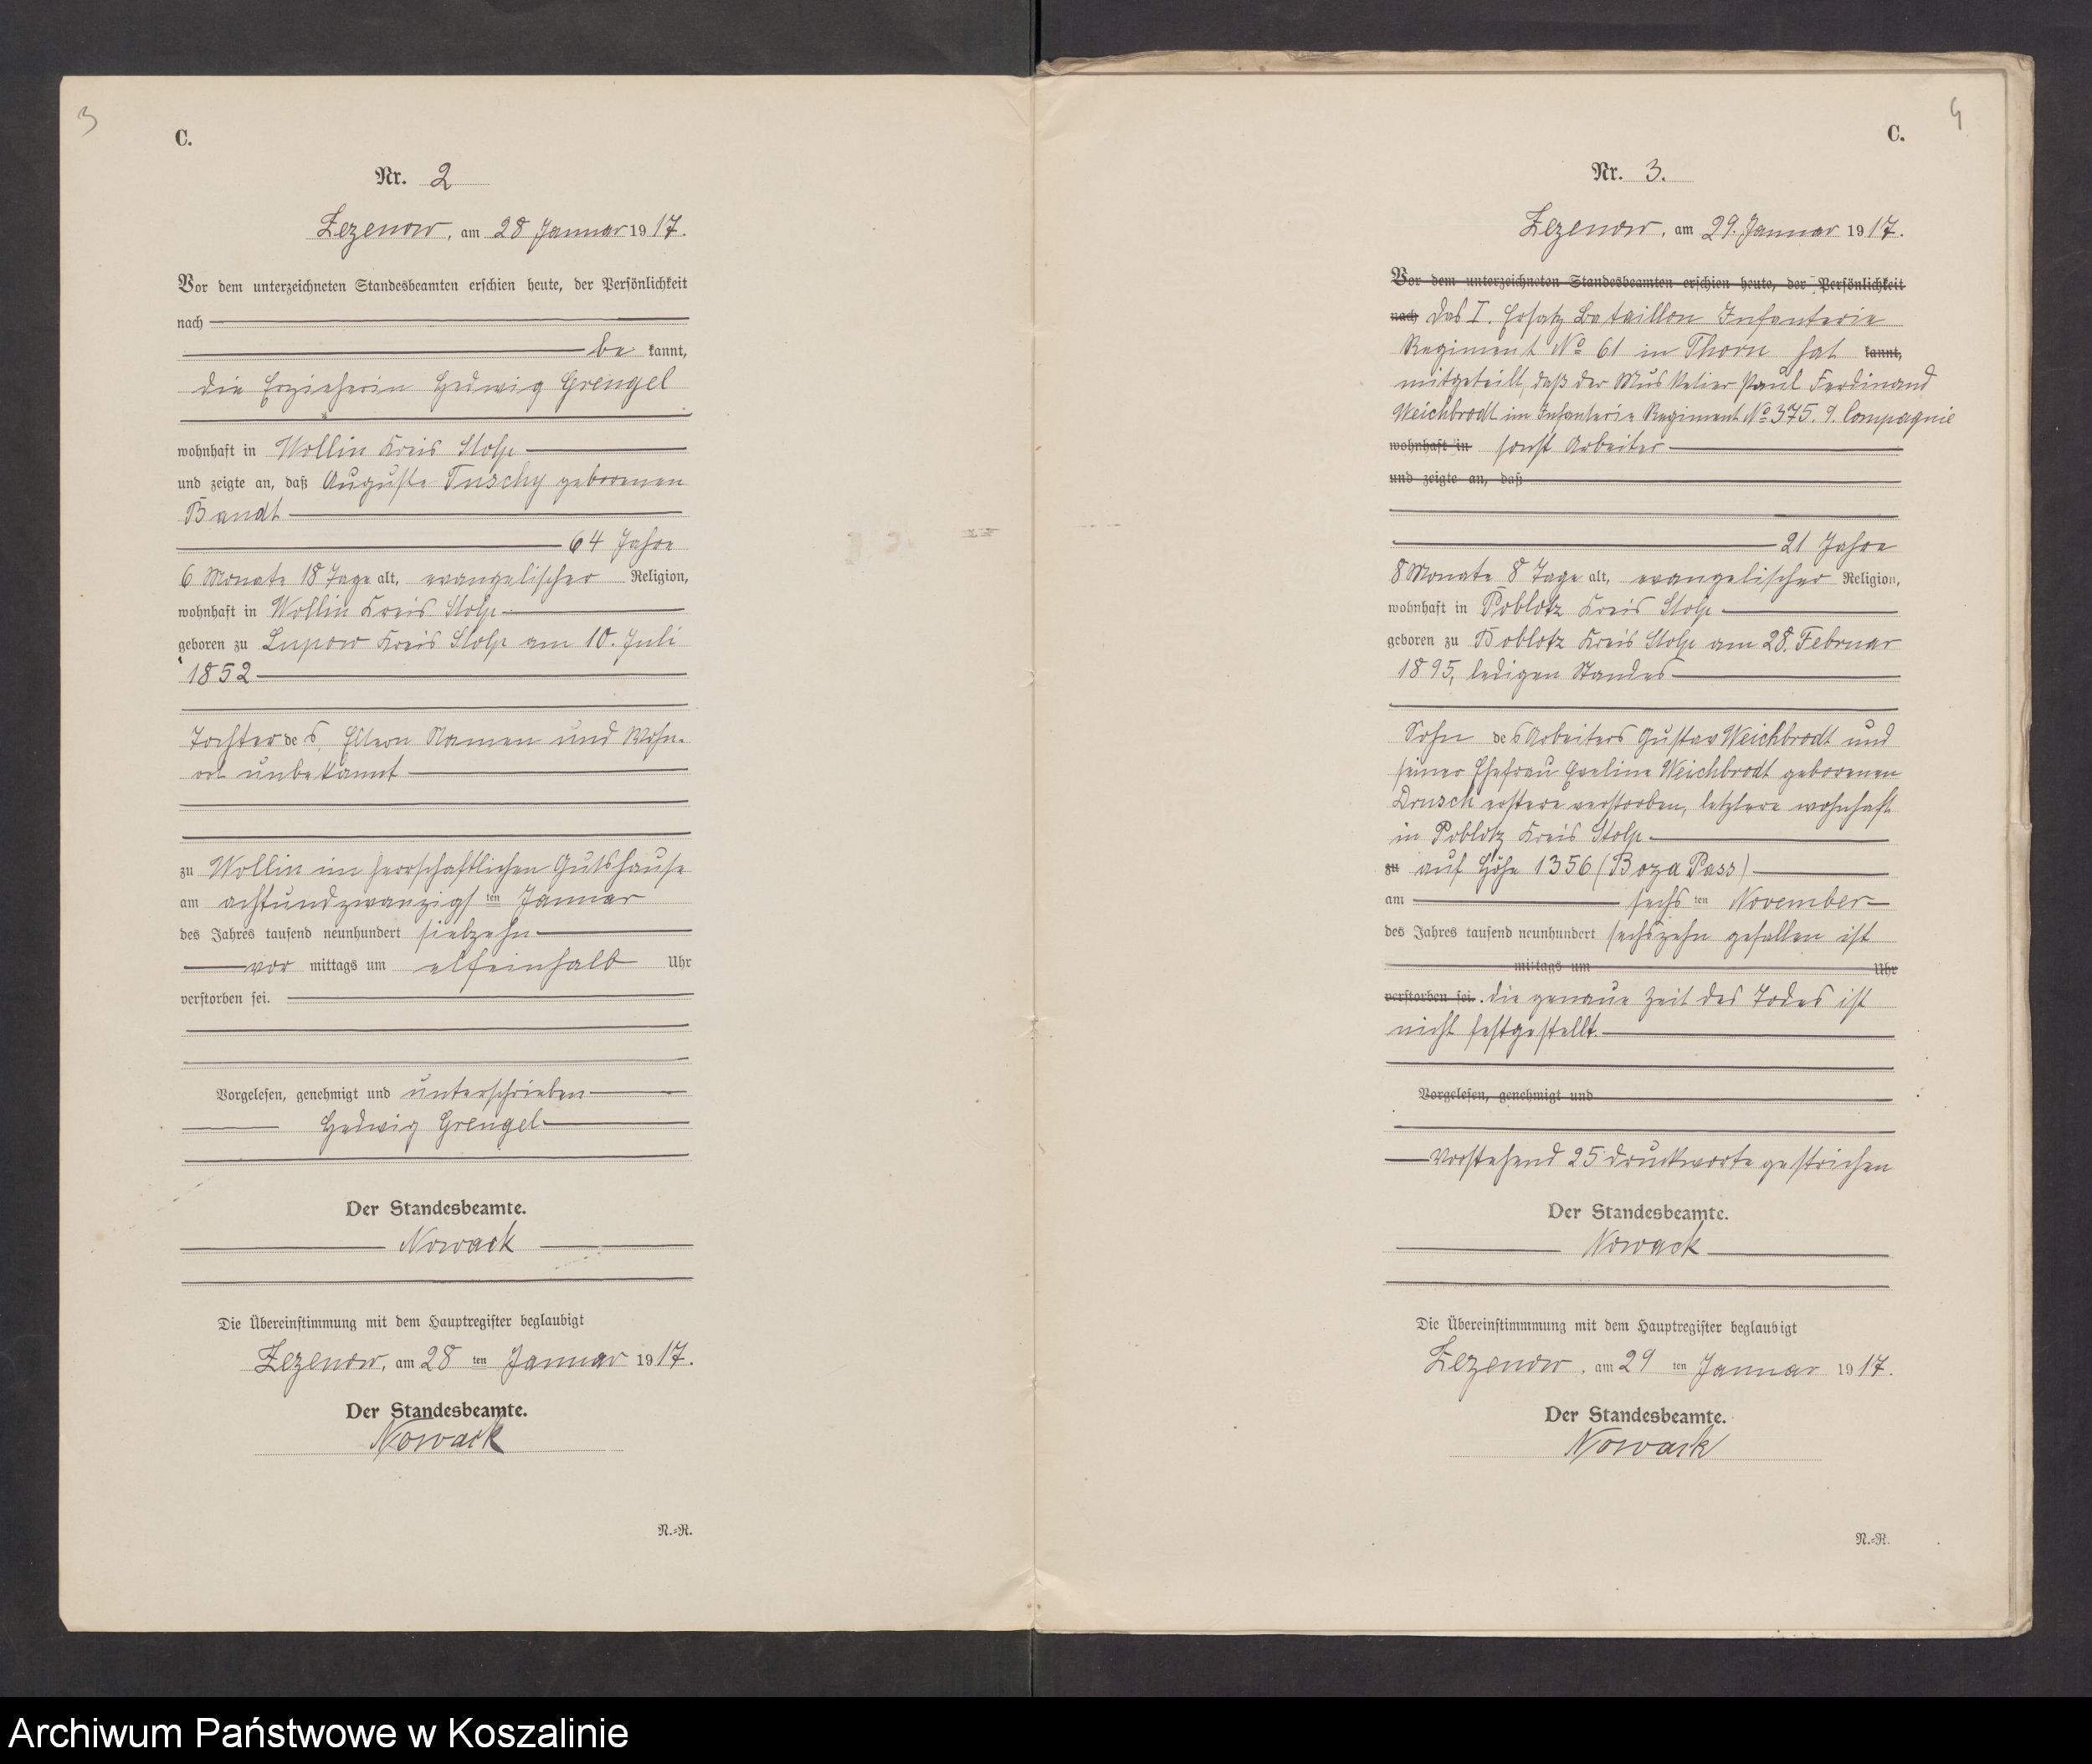 3
C.
Nr. 2
Zezenow, am 28 Januar 1917.
Vor dem unterzeichneten Standesbeamten erschien heute, der Persönlichkeit
nach
be kannt,
die Erzieherin Hedwig Grengel
wohnhaft in Wollin Kreis Stolp
und zeigte an, daß Auguste Tuschy geborenen
Bandt
64 Jahre
6 Monate 18 Tage alt, evangelischer Religion,
wohnhaft in Wollin Kreis Stolp
geboren zu Lupow Kreis Stolp am 10. Juli
1852
Tochter des, Eltern Namen und Wohn-
ort unbekannt
zu Wollin im herrschaftlichen Gutshause
am achtundzwanzigsten Januar
des Jahres tausend neunhundert siebzehn
vor mittags um elfeinhalb Uhr
verstorben sei.
Vorgelesen, genehmigt und unterschrieben
Hedwig Grengel
Der Standesbeamte.
Nowack
Die Übereinstimmung mit dem Hauptregister beglaubigt
Zezenow, am 28 ten Januar 1917.
Der Standesbeamte.
Nowack
N.=R.
4
C.
Nr. 3.
Zezenow, am 29. Januar 1917.
Vor dem unterzeichneten Standesbeamten erschien heute, der Persönlichkeit
nach das I. Ersatz Bataillon Infanterie
Regiment No 61 in Thorn hat kannt,
mitgeteilt, daß der Musketier Paul Ferdinand
Weichbrodt im Infanterie Regiment No 375. 9. Compagnie
wohnhaft in sonst Arbeiter
und zeigte an, daß
21 Jahre
8 Monate 8 Tage alt, evangelischer Religion,
wohnhaft in Poblotz Kreis Stolp
geboren zu Poblotz Kreis Stolp am 28. Februar
1895, ledigen Standes
Sohn des Arbeiters Gustav Weichbrodt und
seiner Ehefrau Eveline Weichbrodt geborenen
Drusch erstere verstorben, letztere wohnhaft
in Poblotz Kreis Stolp
zu auf Höhe 1356 (Boza Pass)
am sechs ten November
des Jahres tausend neunhundert sechszehn gefallen ist
mittags um Uhr
verstorben sei. die genaue Zeit des Todes ist
nicht festgestellt.
Vorgelesen, genehmigt und
Vorstehend 25 Druckworte gestrichen
Der Standesbeamte.
Nowack
Die Übereinstimmmung mit dem Hauptregister beglaubigt
Zezenow, am 29 ten Januar 1917.
Der Standesbeamte.
Nowack
N.=R.
Archiwum Państwowe w Koszalinie